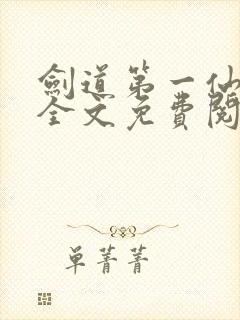 劍道第一仙
全文免費閱
单菁菁